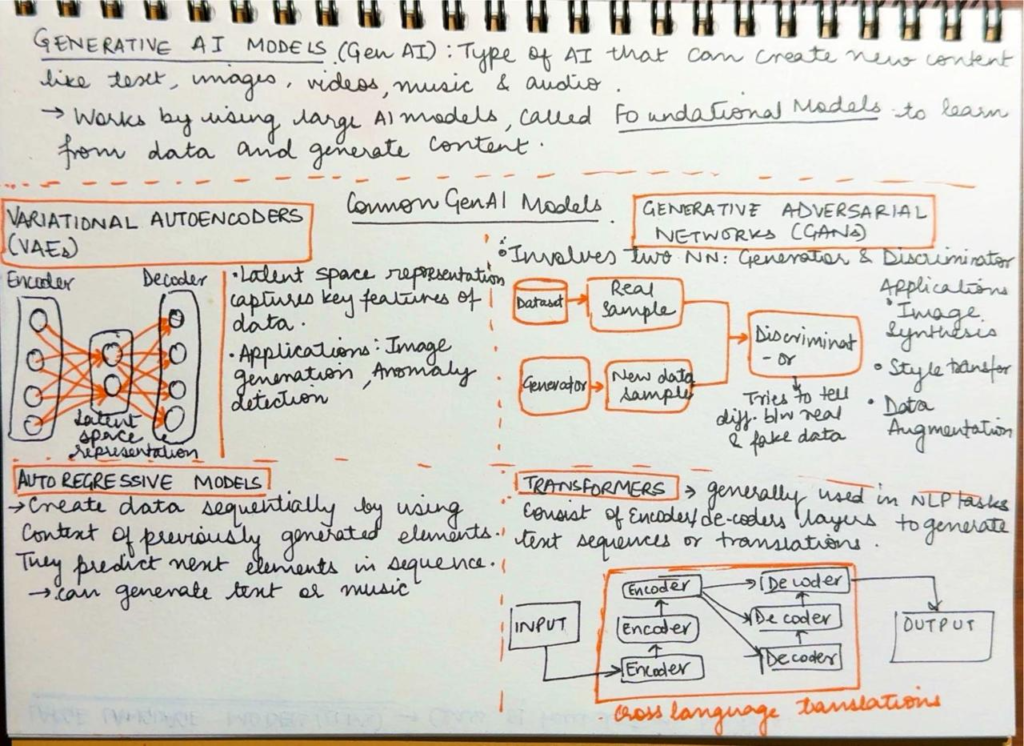 GENERATIVE AI MODELS (Gen AI) : Type of AI that can create new content
like text, images, videos, music & audio.
→ Works by using large AI models, called Foundational Models to learn
from data and generate content.
Common GenAI Models
VARIATIONAL AUTOENCODERS
(VAEs)
Encoder
Decoder
Latent
space
representation
• Latent space representation
captures key features of
data.
• Applications: Image
generation, Anomaly
detection
GENERATIVE ADVERSARIAL
NETWORKS (GANs)
• Involves two NN: Generator & Discriminator
Dataset
Real
Sample
Generator
New data
sample
Discriminat
-or
Tries to tell
diff. b/w real
& fake data
Applications
• Image
Synthesis
• Style transfor
• Data
Augmentation
AUTO REGRESSIVE MODELS
→ Create data sequentially by using
context of previously generated elements.
They predict next elements in sequence.
→ can generate text or music
TRANSFORMERS → generally used in NLP tasks
Consist of Encoder/de-coders layers to generate
text sequences or translations.
INPUT
Encoder
Encoder
Encoder
Decoder
Decoder
Decoder
OUTPUT
cross language translations